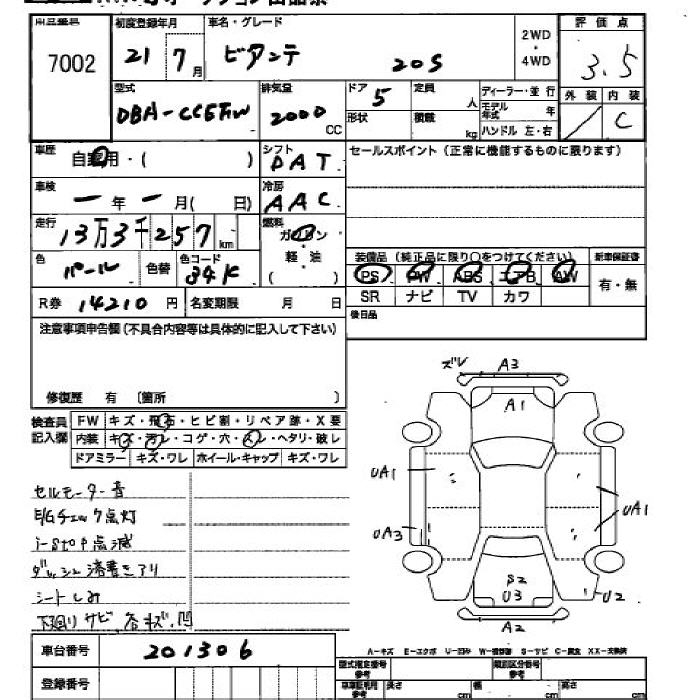 7002
初度登録年月
21 7月
車名・グレード
ビアンテ 20S
2WD
・
4WD
評価点
3.5
外装 内装
C
型式
DBA-CCEFW
排気量
2000 CC
ドア
5
形状
定員 人
積載 kg
ディーラー・並行
モデル年式 年
ハンドル 左・右
車歴
自家用・( )
シフト
DAT
セールスポイント(正常に機能するものに限ります)
車検
一年一月( 日)
冷房
AAC
走行
13万3千257km
燃料
ガソリン
・
軽油
( )
色
パール
色替
色コード
34K
装備品(純正品に限り○をつけてください)
PS PW ABS エアB AW
SR ナビ TV カワ
新車保証書
有・無
R券 14210円
名変期限 月 日
後日品
注意事項申告欄(不具合内容等は具体的に記入して下さい)
修復歴 有 〔箇所 〕
検査員記入欄
FW キズ・飛石・ヒビ割・リペア跡・X要
内装 キズ・汚レ・コゲ・穴・スレ・ヘタリ・破レ
ドアミラー キズ・ワレ ホイール・キャップ キズ・ワレ
セルモーター音
E/Gチェック点灯
i-stop点滅
ダッシュ浮きアリ
シートしみ
下廻りサビ 各キズ.凹
ズレ A3
A1
UA1
UA3
UA1
S2
U3
U2
A2
車台番号 201306
登録番号
A-キズ E-エクボ U-凹み W-補修跡 S-サビ C-腐食 XX-交換済
型式指定番号 参考
類別区分番号 参考
車庫証明用 参考
長さ cm
幅 cm
高さ cm